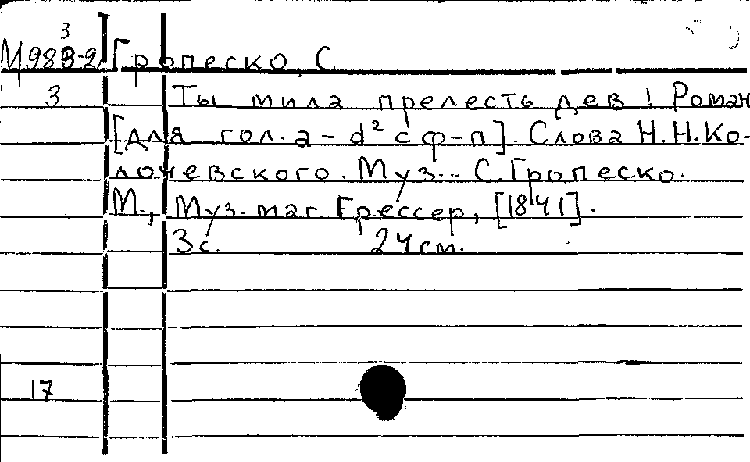 3
М983-2 Гропеско, С
3 Ты мила прелесть дев! Роман
[Для гол. a-d² с ф-п]. Слова Н.Н.Ко-
лочевского. Муз.. С.Гропеско.
М., Муз. маг Грессер, [1841].
3с. 24см.
17